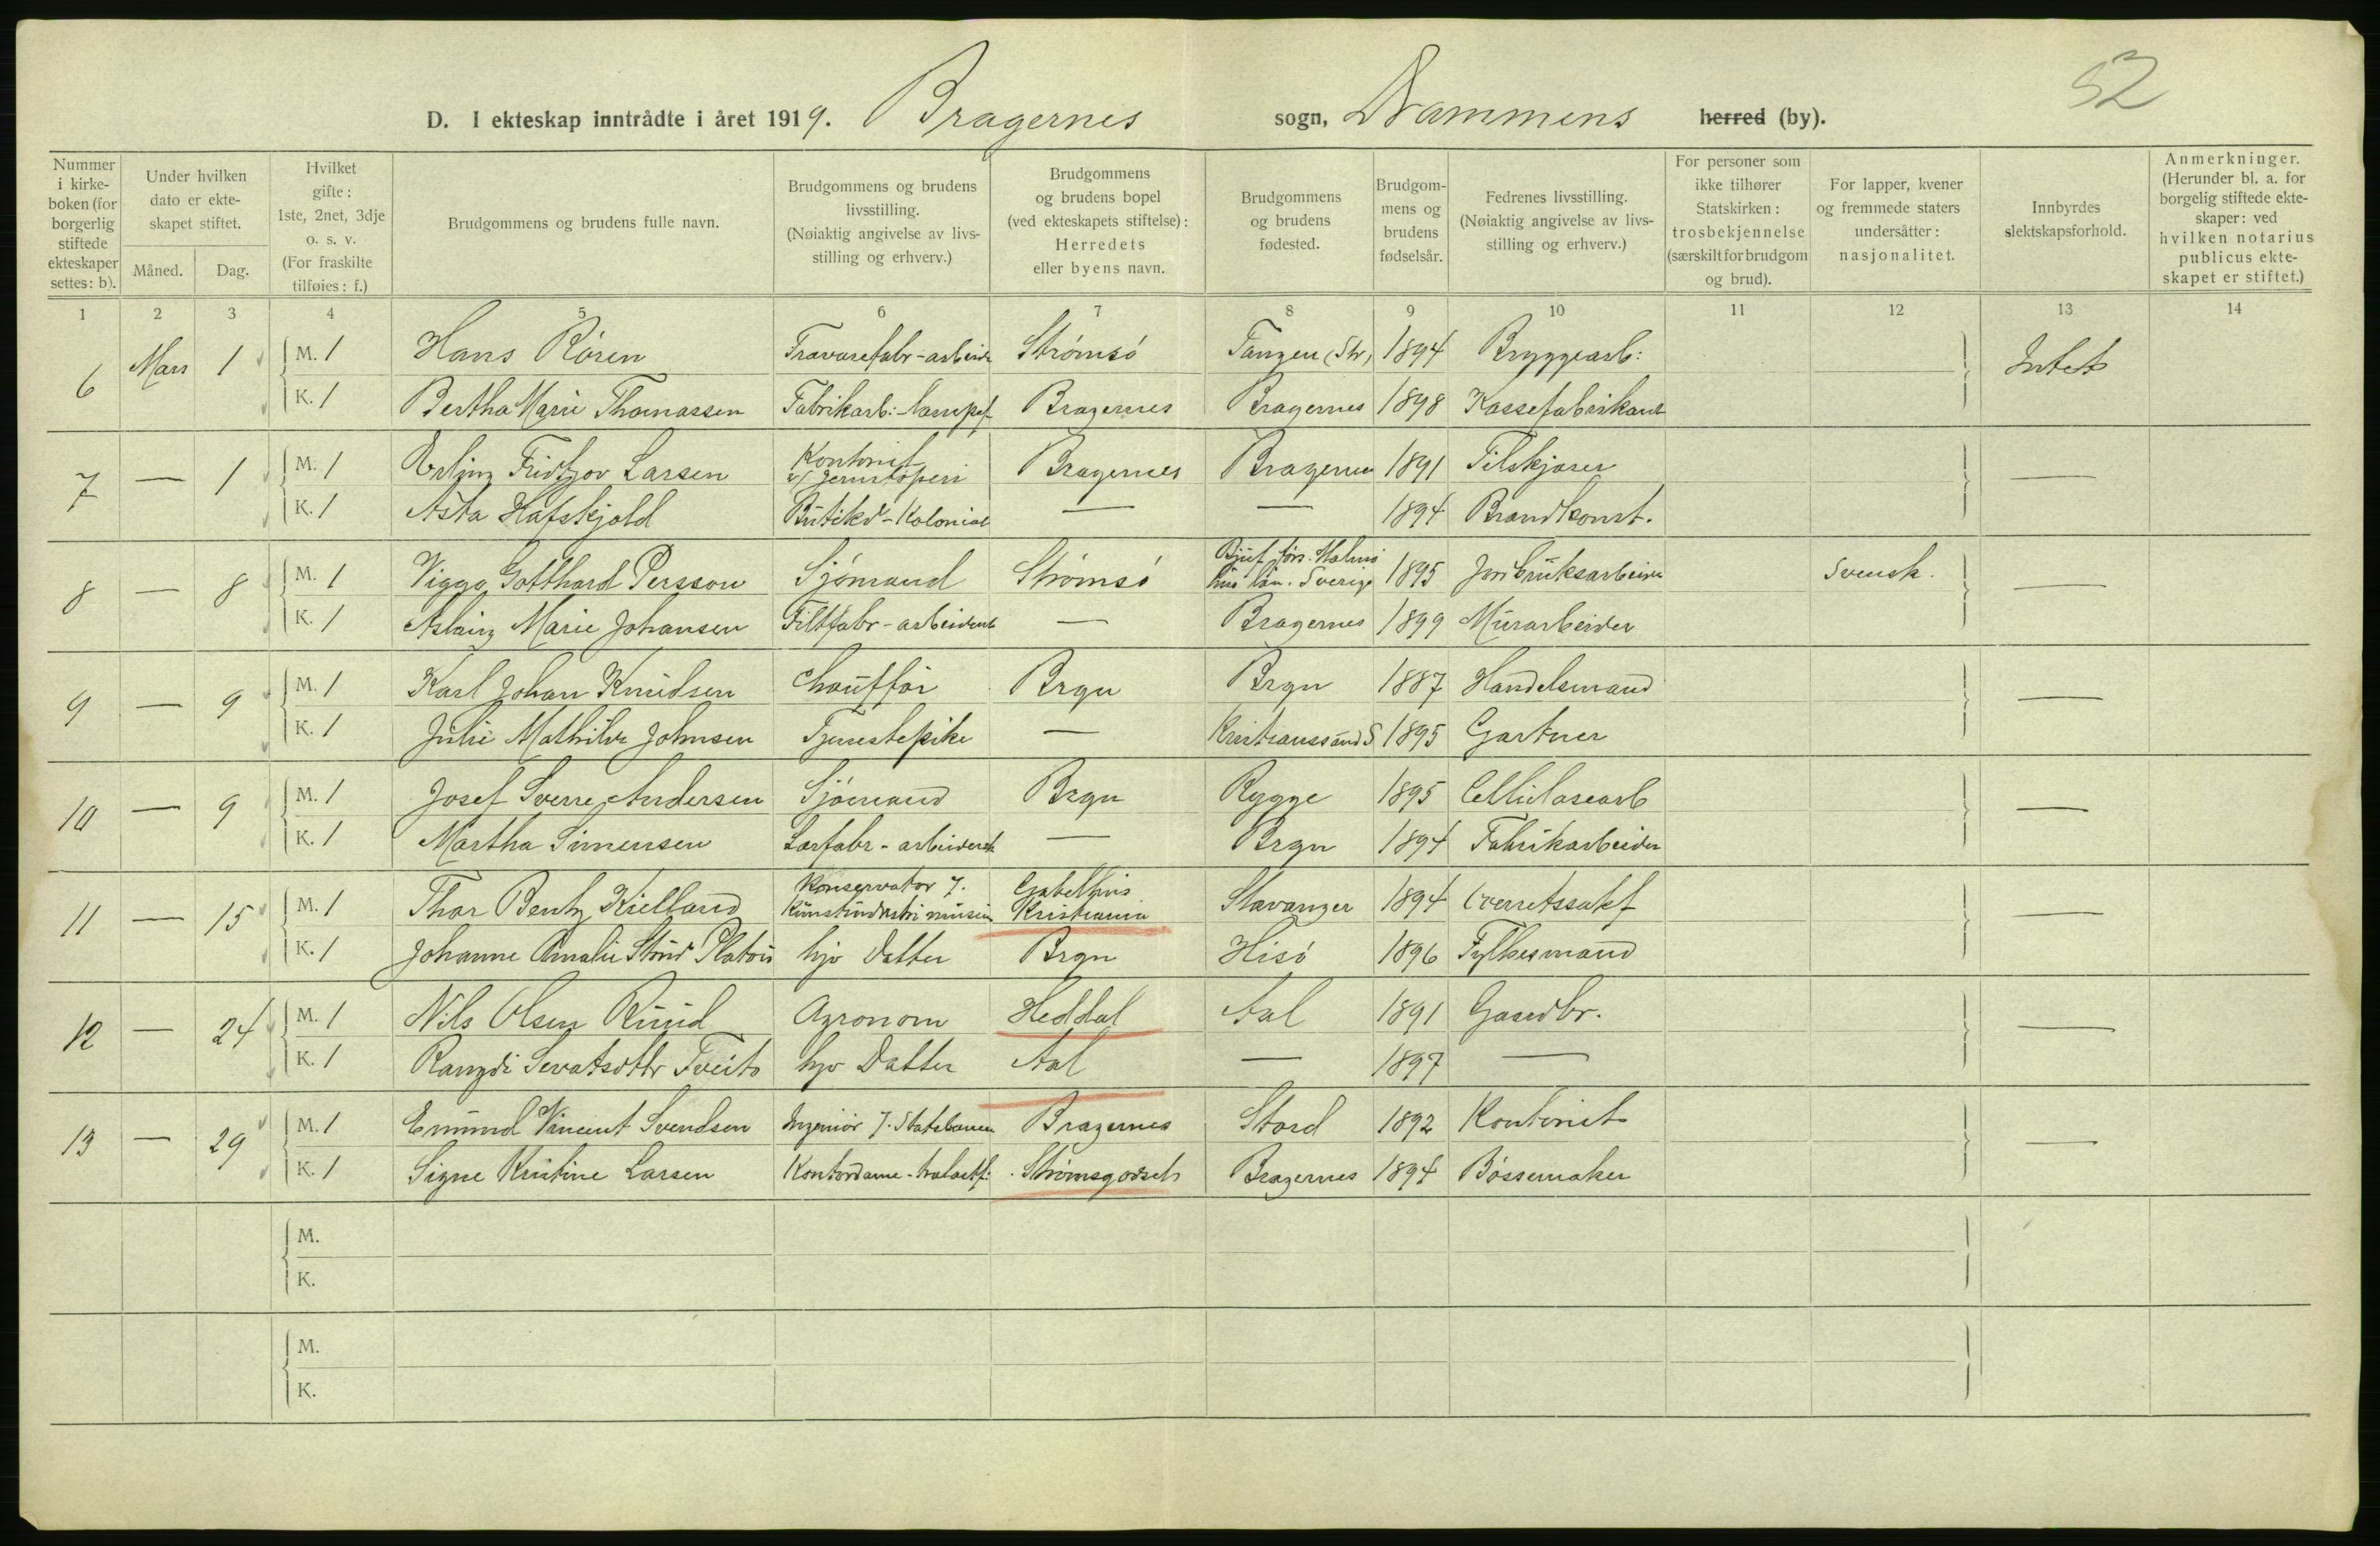 52
D. I ekteskap inntrådte i året 1919. Bragernes sogn, Drammens herred (by).
Nummer i kirke-boken (for borgerlig stiftede ekteskaper settes: b).
Under hvilken dato er ekte-skapet stiftet.
Måned. Dag.
Hvilket gifte: 1ste, 2net, 3dje o. s. v. (For fraskilte tilføies: f.)
Brudgommens og brudens fulle navn.
Brudgommens og brudens livsstilling. (Nøiaktig angivelse av livs-stilling og erhverv.)
Brudgommens og brudens bopel (ved ekteskapets stiftelse): Herredets eller byens navn.
Brudgommens og brudens fødested.
Brudgom-mens og brudens fødselsår.
Fedrenes livsstilling. (Nøiaktig angivelse av livs-stilling og erhverv.)
For personer som ikke tilhører Statskirken: trosbekjennelse (særskilt for brudgom og brud).
For lapper, kvener og fremmede staters undersåtter: nasjonalitet.
Innbyrdes slektskapsforhold.
Anmerkninger. (Herunder bl. a. for borgelig stiftede ekte-skaper: ved hvilken notarius publicus ekte-skapet er stiftet.)
1 2 3 4 5 6 7 8 9 10 11 12 13 14
6 Mars 1 M. 1 Hans Røren Travarefabr-arbeider Strømsø Tangen (Str) 1894 Bryggearb: Intet
K. 1 Bertha Marie Thomassen Fabrikarb: lampef Bragernes Bragernes 1898 Kassefabrikant
7 — 1 M. 1 Erling Fridtjov Larsen Kontorist v/ Jernstøperi Bragernes Bragernes 1891 Tilskjærer —
K. 1 Asta Hafskjold Butikd - Kolonial — — 1894 Brandkonst.
8 — 8 M. 1 Viggo Gotthard Persson Sjømand Strømsø Bjuf förs. Malmö hus län. Sverige 1895 Jordbruksarbeider Svensk. —
K. 1 Aslaug Marie Johansen Filtfabr-arbeiderske — Bragernes 1899 Murarbeider
9 — 9 M. 1 Karl Johan Knudsen Chauffør Brgn Brgn 1887 Handelsmand —
K. 1 Julie Mathilde Johnsen Tjenestepike — Kristianssand S 1895 Gartner
10 — 9 M. 1 Josef Sverre Andersen Sjømand Brgn Rygge 1895 Cellulosearb —
K. 1 Martha Simensen Lærfabr-arbeiderske — Brgn 1894 Fabrikarbeider
11 — 15 M. 1 Thor Bentz Kielland Konservator v. Kunstindustrimuseum Gabelshus Kristiania Stavanger 1894 Overretssakf —
K. 1 Johanne Amalie Stöud Platou hjv Datter Brgn Hisø 1896 Fylkesmand
12 — 24 M. 1 Nils Olsen Ruud Agronom Heddal Aal 1891 Gaardbr. —
K. 1 Rangdi Sevatsdttr Tveito hjv Datter Aal — 1897 —
13 — 29 M. 1 Emund Vincent Svendsen Ingeniør v. Statsbanen Bragernes Stord 1892 Kontorist —
K. 1 Signe Kristine Larsen Kontordame - Strømsgodset Bragernes 1894 Bøssemaker
M.
K.
M.
K.